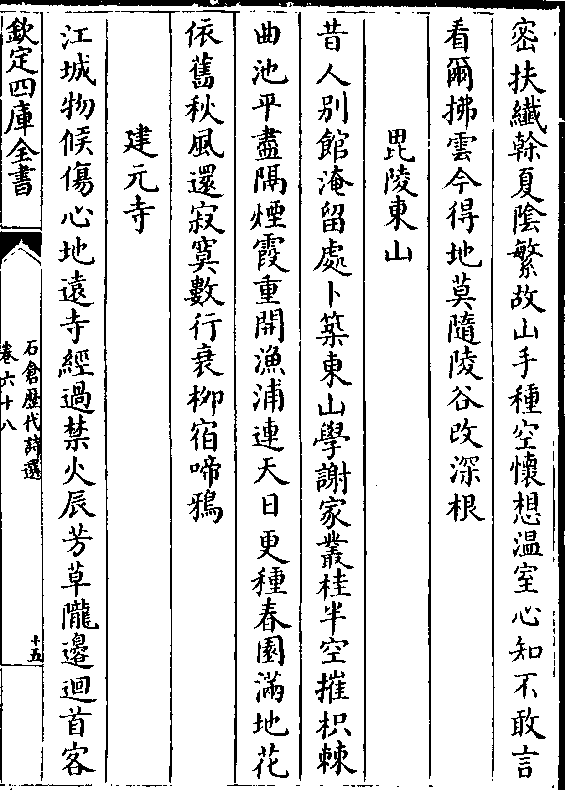 密扶纖榦夏陰繁故山手種空懷想温室心知不敢言
看爾拂雲今得地莫隨陵谷改深根
毘陵東山
昔人别館淹留處卜築東山學謝家叢桂半空摧枳棘
曲池平盡隔煙霞重開漁浦連天日更種春園滿地花
依舊秋風還寂寞數行衰柳宿啼鴉
建元寺
江城物候傷心地遠寺經過禁火辰芳草隴邊迴首客
欽定四庫全書
石倉歴代詩選
卷六十八
十五